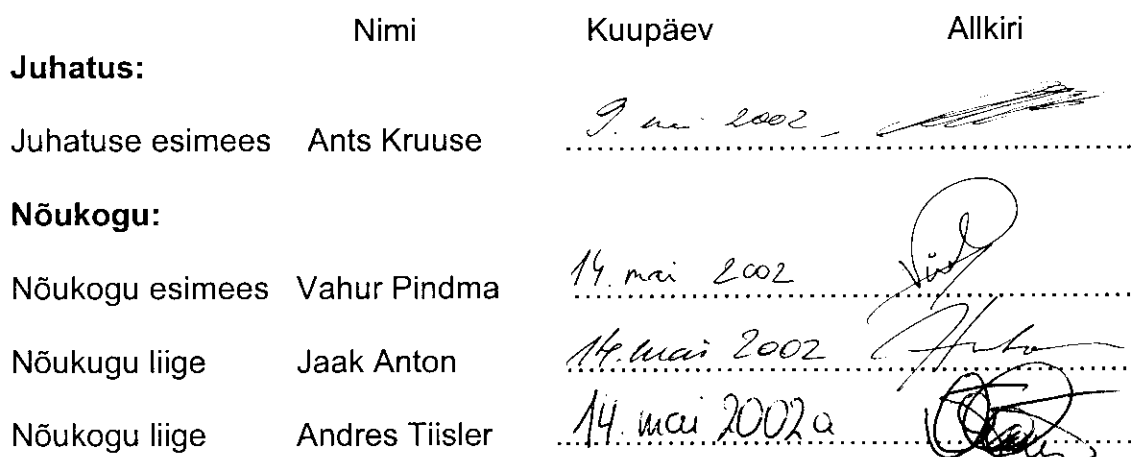 Nimi Kuupäev Allkiri
Juhatus:
Juhatuse esimees Ants Kruuse 9. mai 2002
Nõukogu:
Nõukogu esimees Vahur Pindma 14. mai 2002
Nõukugu liige Jaak Anton 14. mai 2002
Nõukogu liige Andres Tiisler 14. mai 2002a